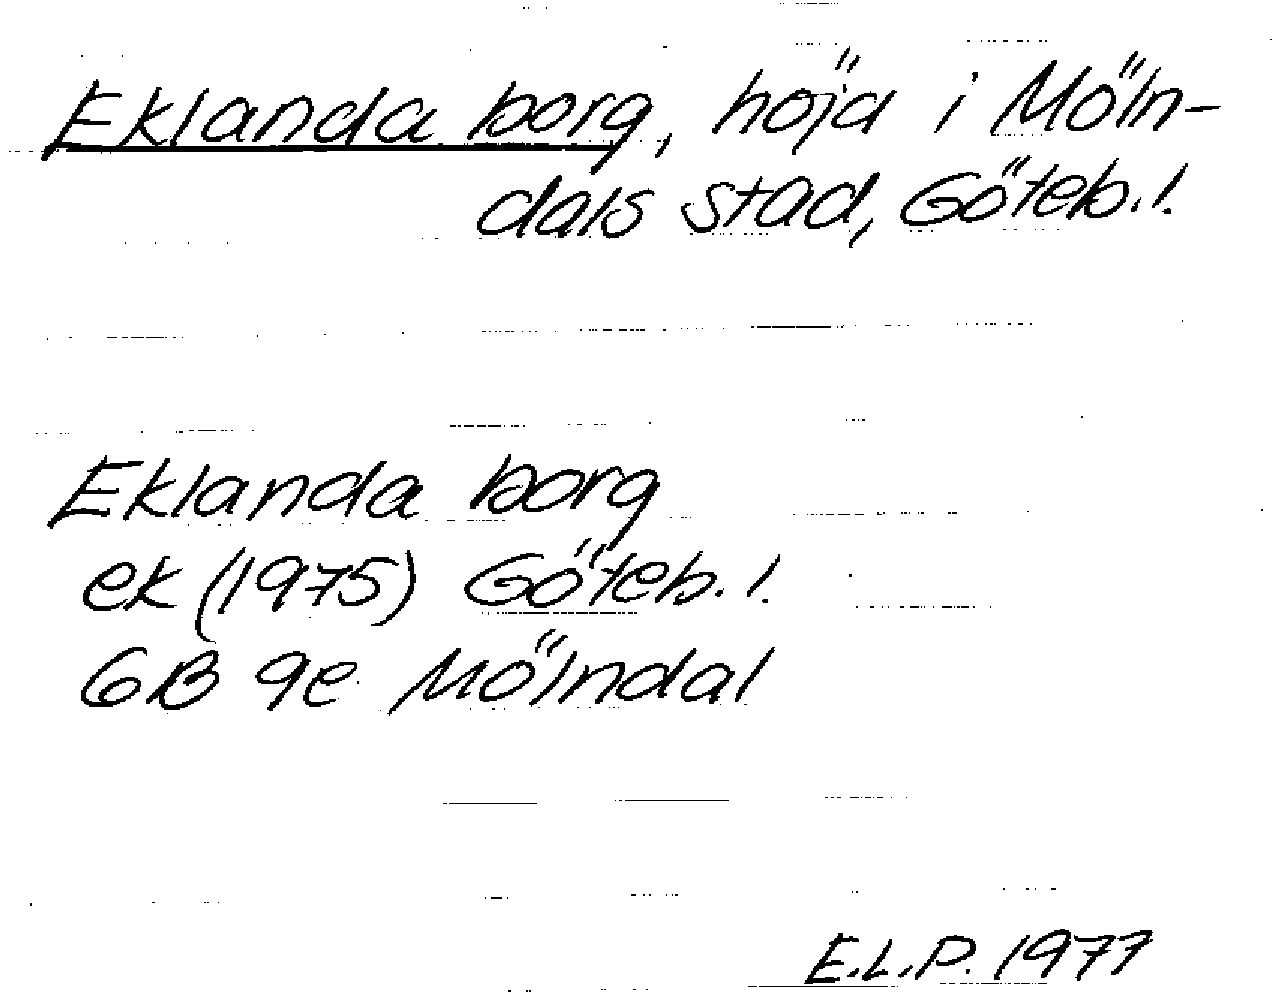 Eklanda borg, höjd i Möln-
dals stad, Göteb.l.
Eklanda borg
ek (1975) Göteb.l.
6B 9e Mölndal
E.L.P. 1977